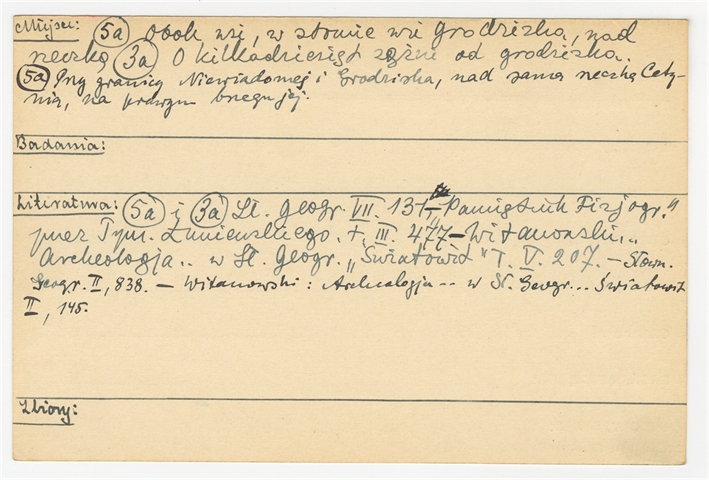 Miejsce: (5a) Obok wsi, w stronie wsi Grodziska, nad
rzeczką (3a) O kilkadziesiąt sążni od grodziska.
(5a) Przy granicy Niewiadomej i Grodziska, nad samą rzeczką Cety-
nią, na prawym brzegu jej.
Badania:
Literatura: (5a) i (3a) Sł. Geogr. VII. 137 – "Pamiętnik Fizjogr."
przez Tym. Łuniewskiego, t. III. 477 – Witanowski, "
Archeologja .. w Sł. Geogr. "Światowit" T. V. 207. – Słown.
Geogr. II, 838. – Witanowski: Archeologja -- w Sł. Geogr... Światowit
II, 145.
Zbiory: